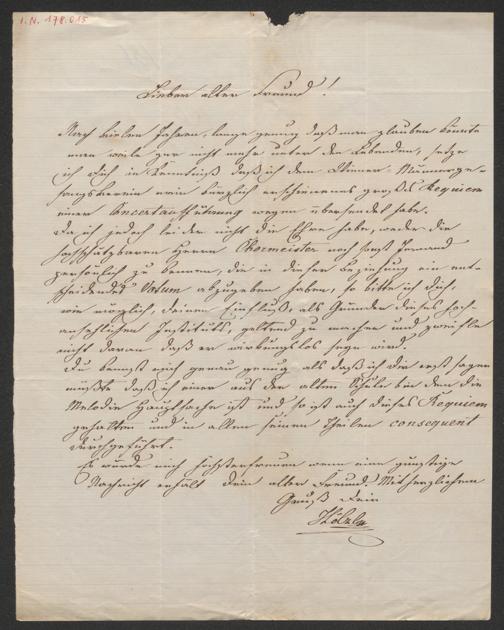 I.N. 178.015
Lieber alter Freund!
Nach vielen Jahren, lange genug daß man glauben könnte
man weile gar nicht mehr unter den Lebenden, setze
ich Dich in Kenntniß daß ich dem Wiener-Männerge-
sangverein mein kürzlich erschienenes großes Requiem
einer Concertaufführung wegen übersendet habe.
Da ich jedoch leider nicht die Ehre habe, weder die
hochschätzbaren Herrn Chormeister noch sonst Jemand
persönlich zu kennen, die in dieser Beziehung ein ent-
scheidendes Votum abzugeben haben, so bitte ich Dich,
wie möglich, deinen Einfluß, als Gründer dieses hoch-
ansehlichen Instituts, geltend zu machen und zweifle
nicht daran daß er wirkungslos seyn wird.
Du kennst mich genau genug als daß ich Dir erst sagen
müßte daß ich einer aus der alten Schule bin dem die
Melodie Hauptsache ist und so ist auch dieses Requiem
gehalten und in allen seinen Theilen consequent
durchgeführt.
Es würde mich höchst erfreuen wenn eine günstige
Nachricht erhält Dein alter Freund. Mit herzlichem
Gruß Dein
Hölzl